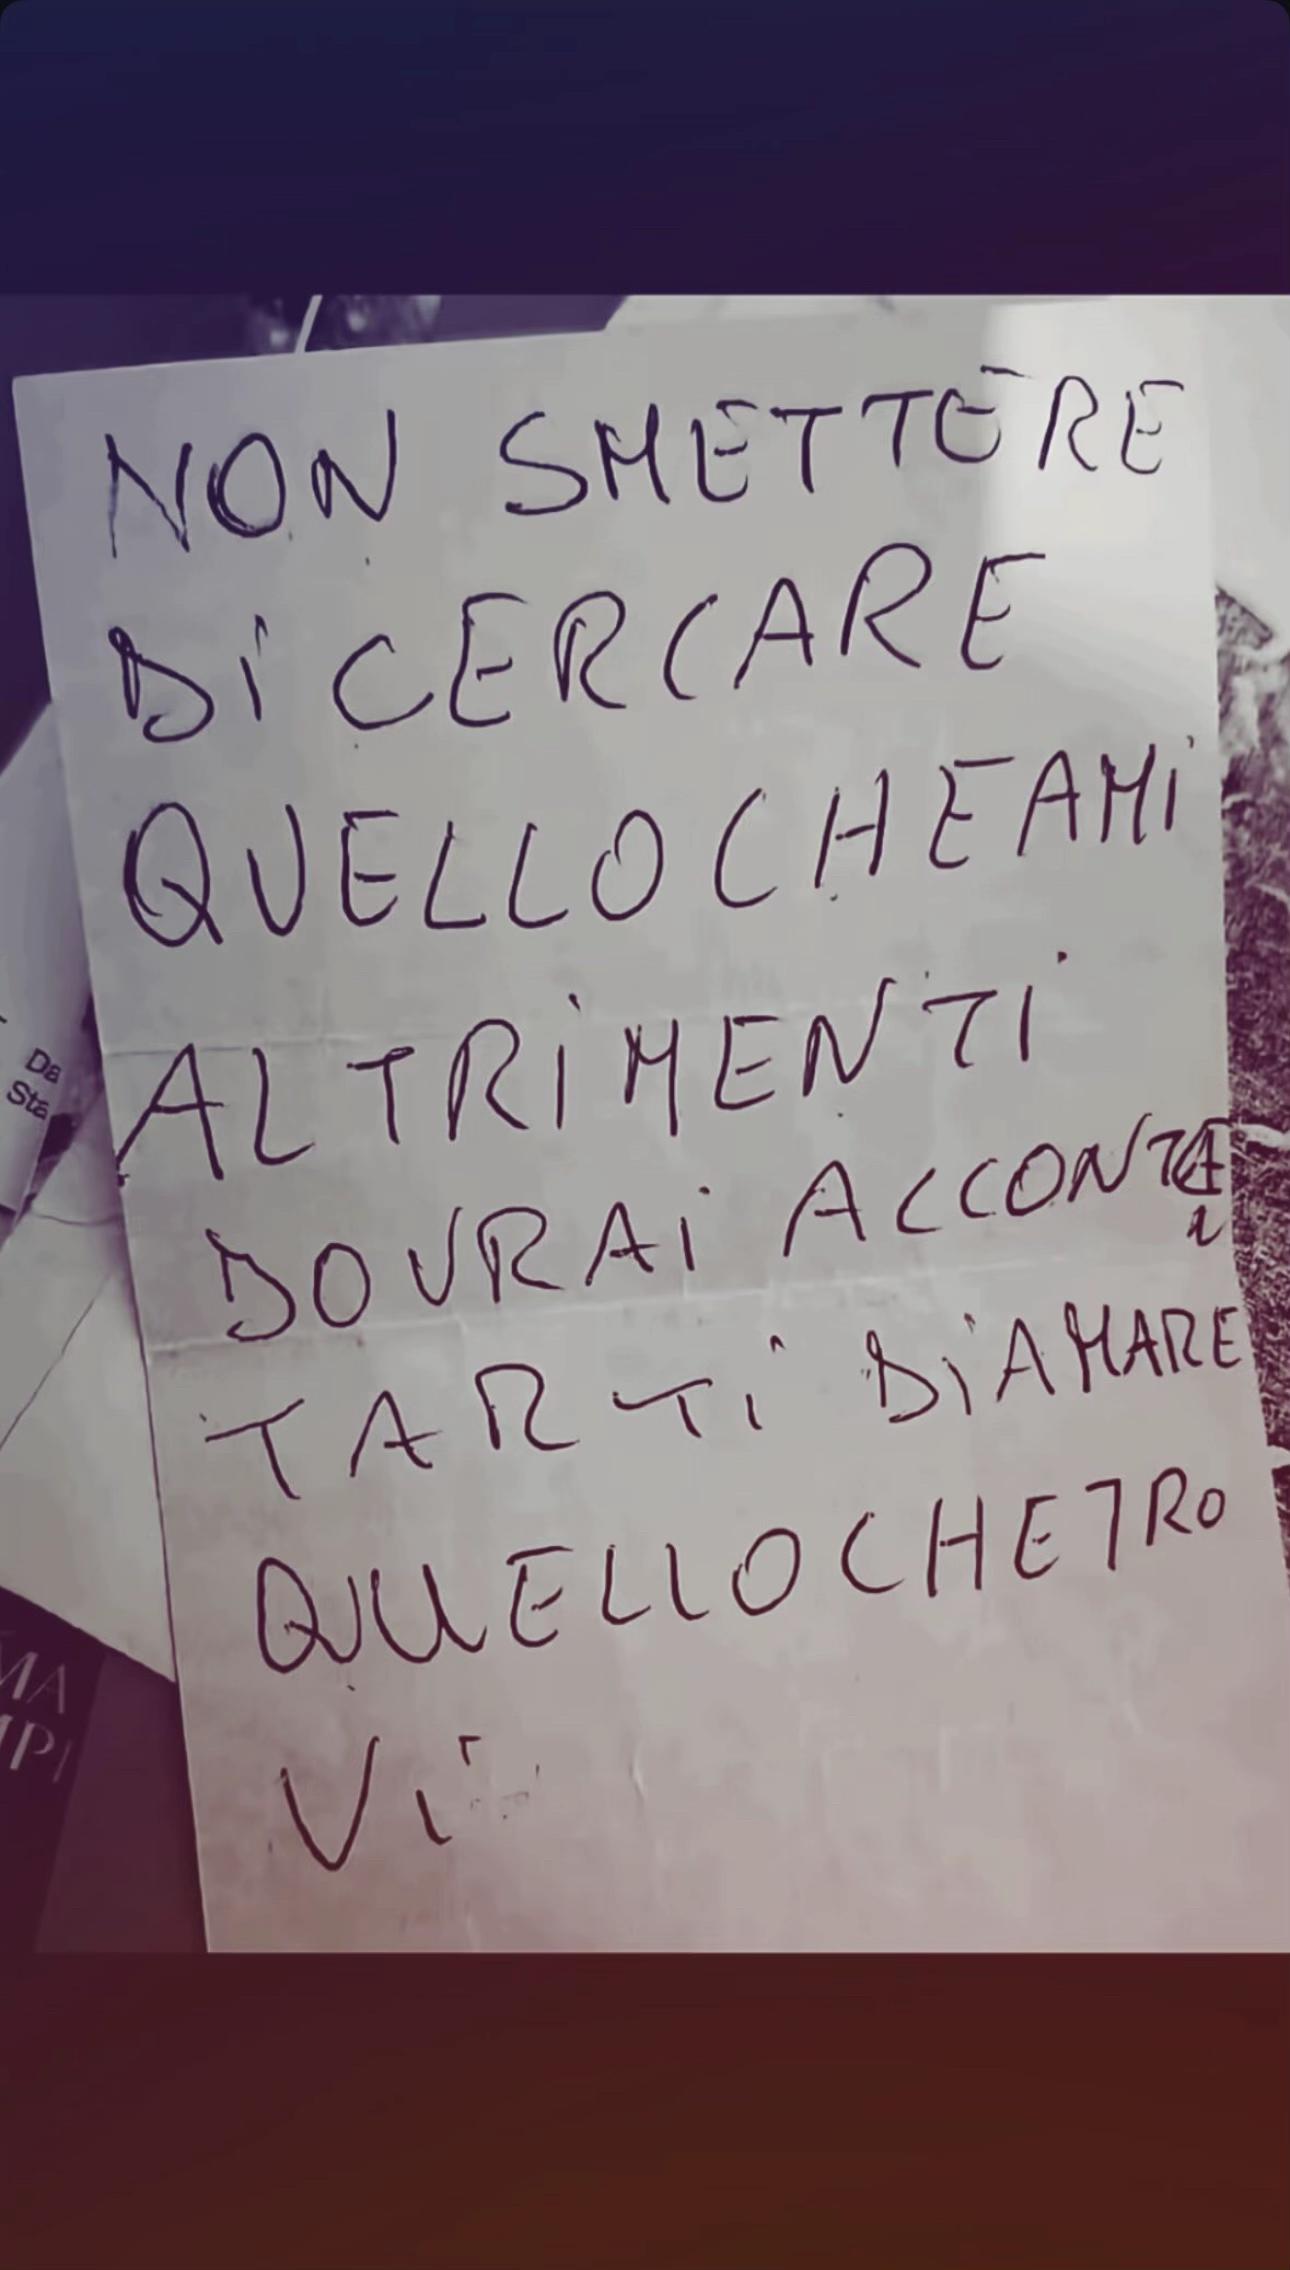 NON SMETTERE
Di CERCARE
QUELLO CHE AMi
ALTRiMENTI
DOVRAi ACCONTE
N
TARTi Di AMARE
QUELLO CHE TRO
Vi
Da
Sta
MA
MPI